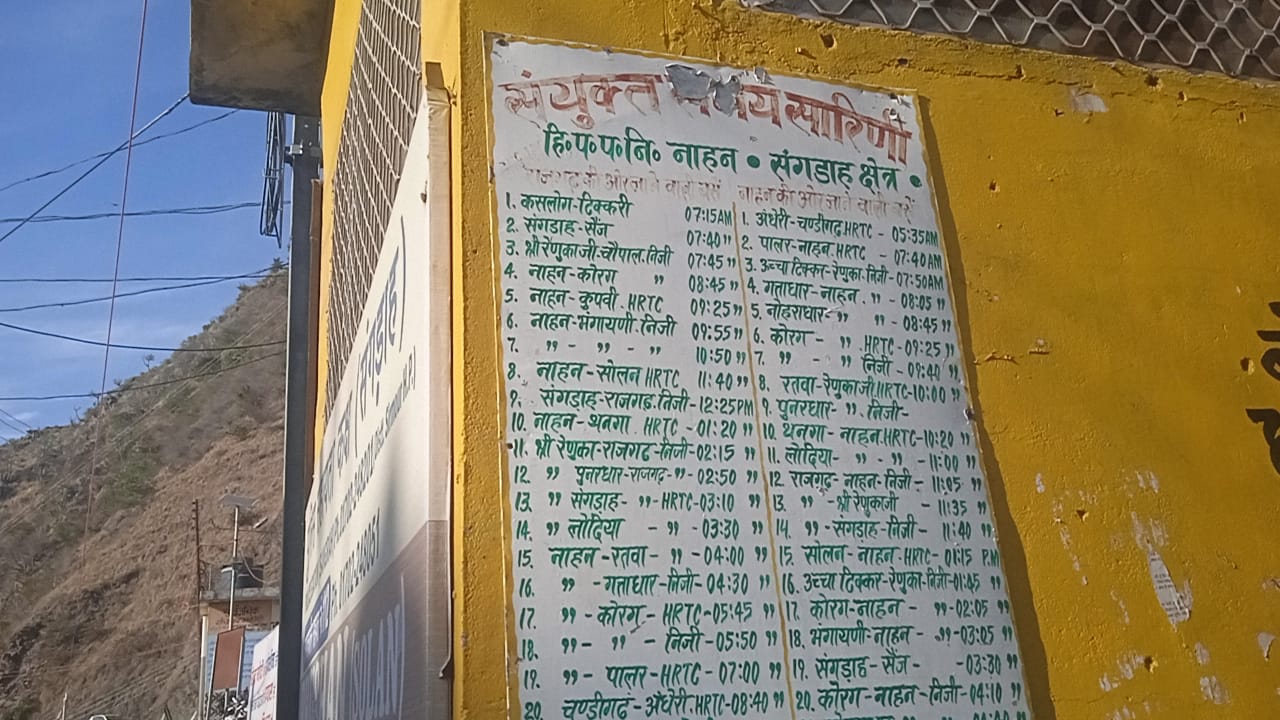 संयुक्त समय सारिणी
हि॰प॰प॰नि॰ नाहन • संगडाह क्षेत्र •
राजगढ़ की ओर जाने वाली बसें
1. कसलोग-टिक्करी 07:15AM
2. संगडाह-सैंज 07:40 "
3. श्री रेणुका जी-चौपाल.निजी 07:45 "
4. नाहन-कोरग " 08:45 "
5. नाहन-कुपवी. HRTC 09:25 "
6. नाहन-मंगायणी.निजी 09:55 "
7. " - " - " 10:50 "
8. नाहन-सोलन HRTC 11:40 "
9. संगडाह-राजगढ़.निजी-12:25PM
10. नाहन-थनगा. HRTC-01:20 "
11. श्री रेणुका-राजगढ़-निजी-02:15 "
12. " पुनरधार-राजगढ़-"-02:50 "
13. " संगडाह- "-HRTC-03:10 "
14. " लोदिया - " -03:30 "
15. नाहन-रतवा- " -04:00 "
16. " -गत्ताधार-निजी-04:30 "
17. " -कोरग-HRTC-05:45 "
18. " - " - निजी-05:50 "
19. " - पालर-HRTC-07:00 "
20. चण्डीगढ़-अंधेरी.HRTC-08:40 "
नाहन की ओर जाने वाली बसें
1. अंधेरी-चण्डीगढ़ HRTC - 05:35AM
2. पालर-नाहन.HRTC - 07:40AM
3. उच्चा टिक्कर-रेणुका.निजी-07:50AM
4. गत्ताधार-नाहन. " - 08:05 "
5. नोहराधार- " " -08:45 "
6. कोरग - " . HRTC-09:25 "
7. " - " निजी -09:40 "
8. रतवा-रेणुका जी.HRTC-10:00 "
9. पुनरधार- " . निजी-
10. थनगा- नाहन.HRTC-10:20 "
11. लोदिया- " - " -11:00 "
12. राजगढ़-नाहन-निजी- 11:05 "
13. " -श्री रेणुकाजी - 11:35 "
14. " -संगडाह-निजी- 11:40 "
15. सोलन-नाहन-HRTC-01:15 P.M
16. उच्चा टिक्कर-रेणुका-निजी-01:45 "
17. कोरग-नाहन- "-02:05 "
18. मंगायणी-नाहन- "-03:05 "
19. संगडाह-सैंज- -03:30 "
20. कोरग-नाहन-निजी-04:10 "
(संगडाह)
(SOLAN)